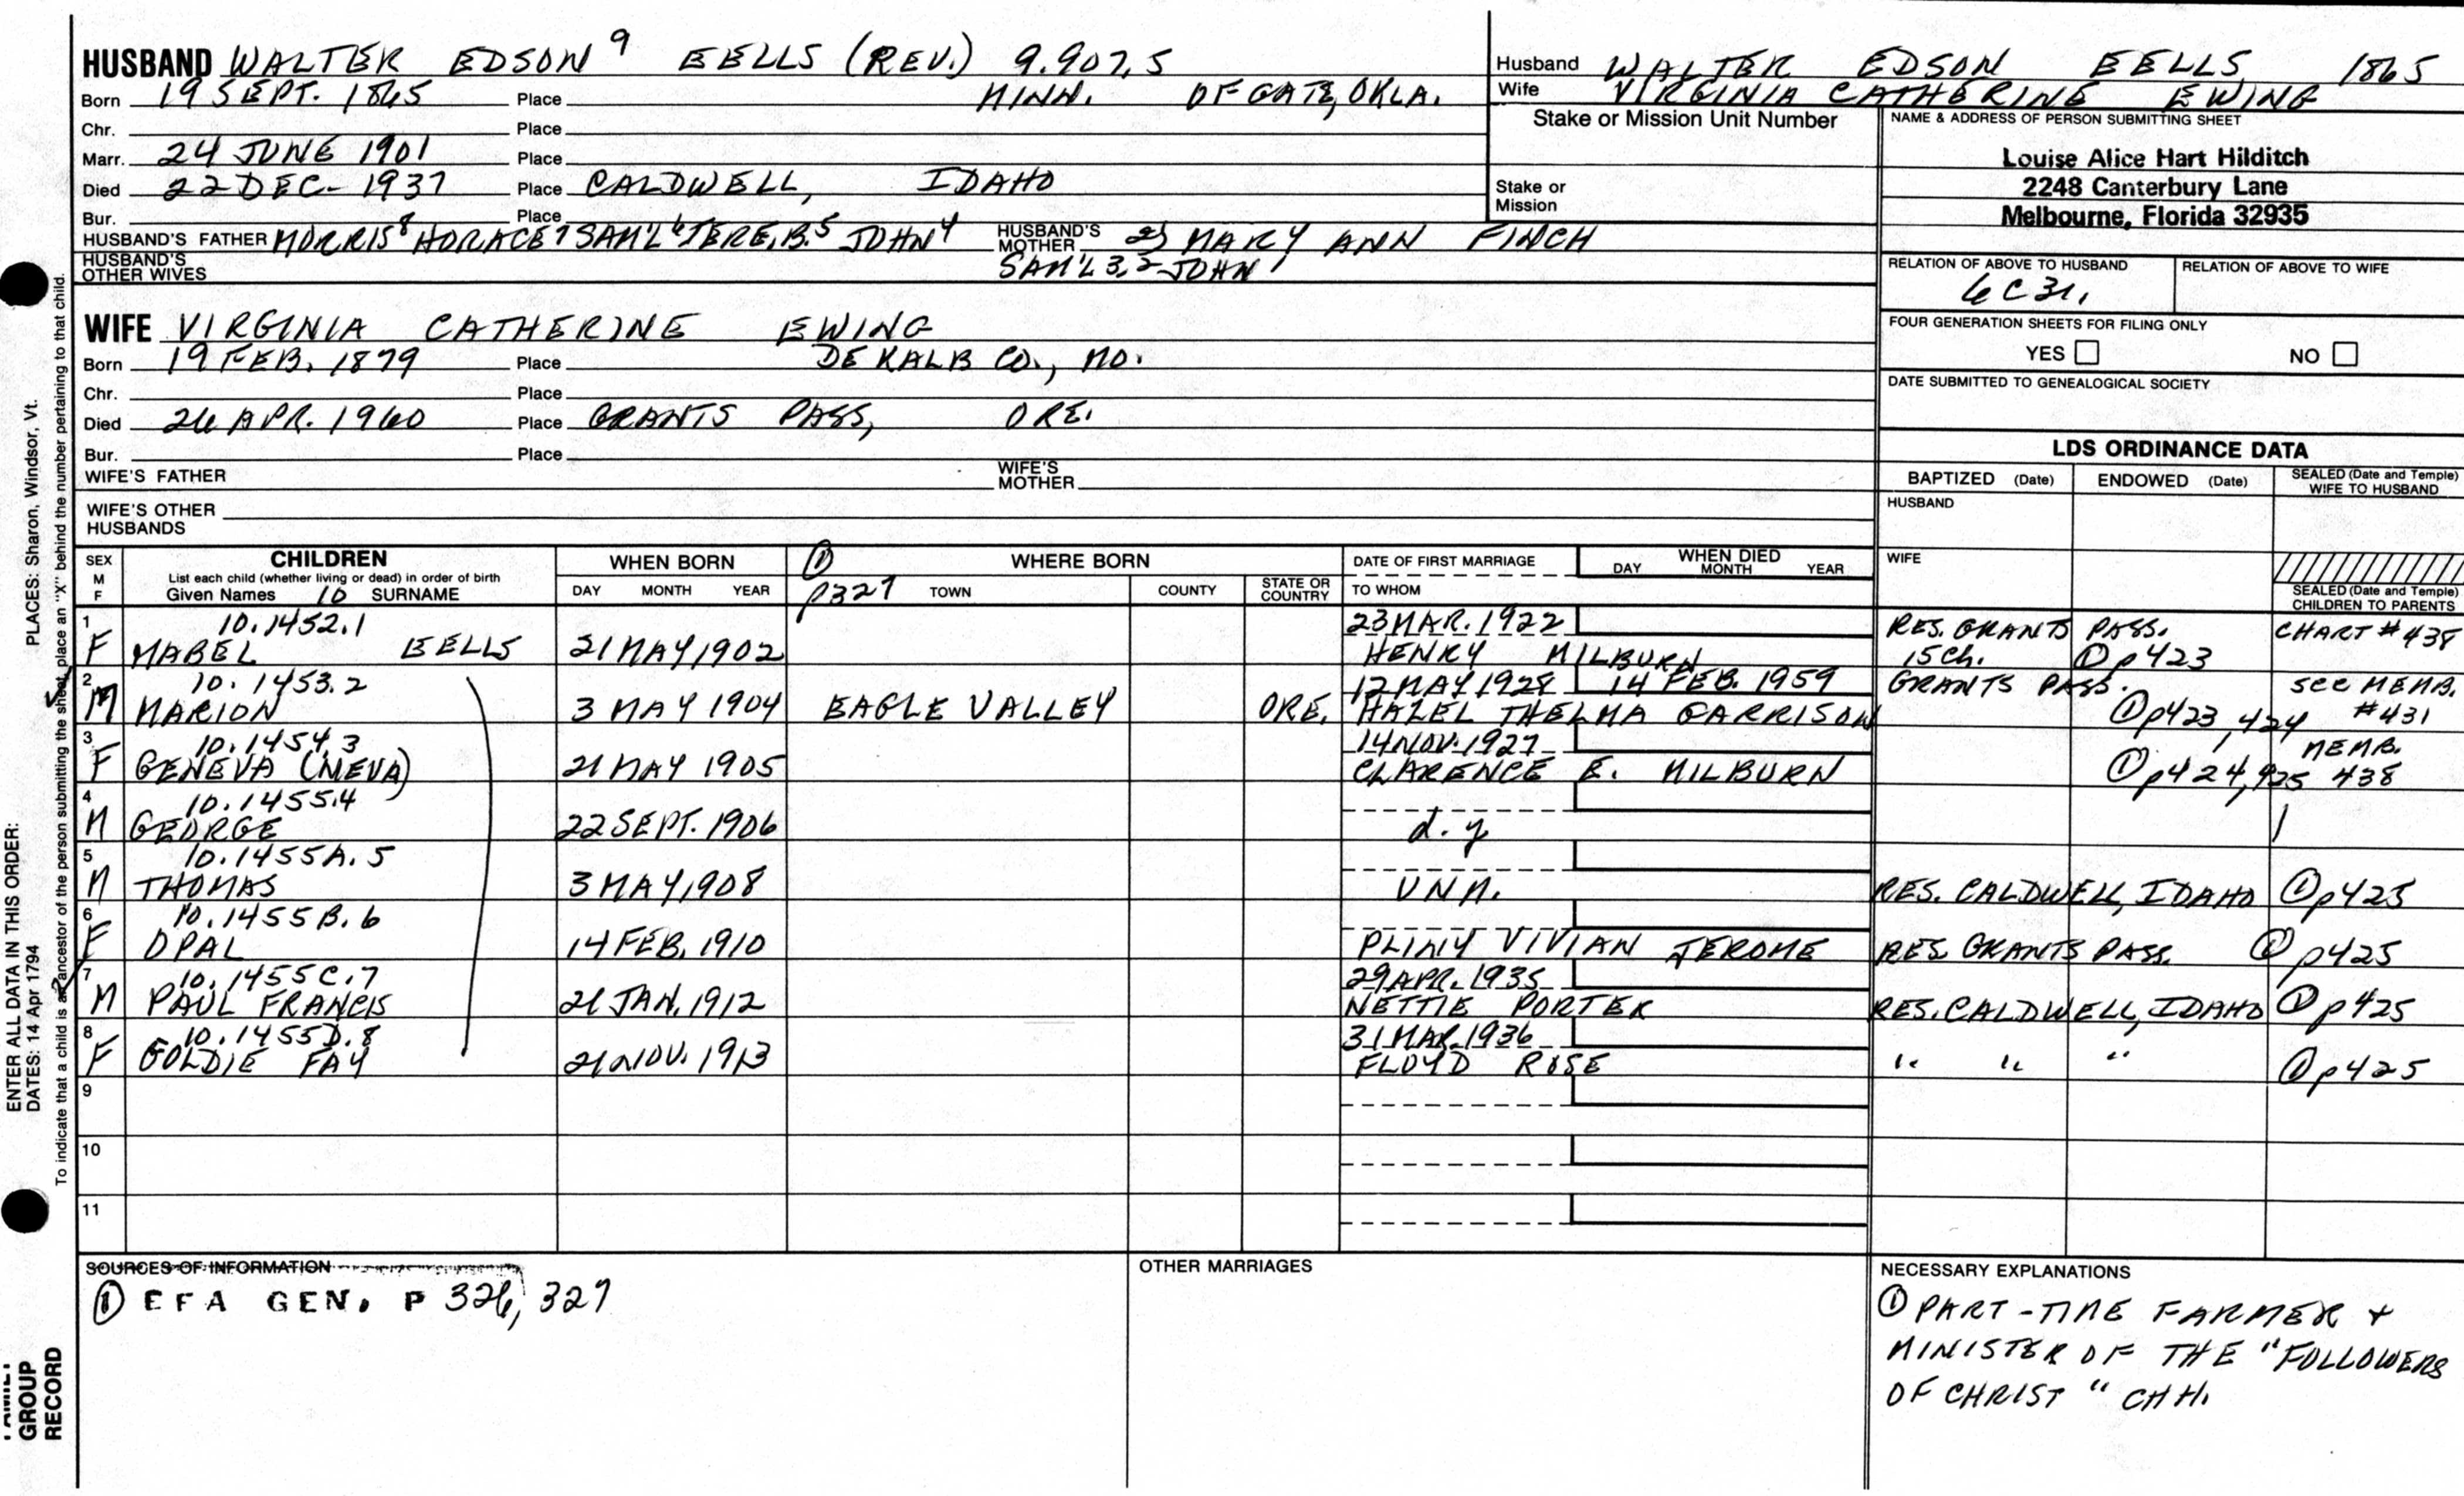 HUSBAND WALTER EDSON 9 EELLS (REV.) 9.907.5
Born 19 SEPT. 1865 Place MINN. OF GATE, OKLA.
Chr. Place
Marr. 24 JUNE 1901 Place
Died 22 DEC- 1937 Place CALDWELL, IDAHO
Bur. Place
HUSBAND'S FATHER MORRIS 8 HORACE 7 SAM'L 6 JERE. B. 5 JOHN 4 HUSBAND'S MOTHER 2) MARY ANN FINCH
HUSBAND'S OTHER WIVES SAM'L 3,2 JOHN 1
Husband WALTER EDSON EELLS, 1865
Wife VIRGINIA CATHERINE EWING
Stake or Mission Unit Number
Stake or Mission
NAME & ADDRESS OF PERSON SUBMITTING SHEET
Louise Alice Hart Hilditch
2248 Canterbury Lane
Melbourne, Florida 32935
RELATION OF ABOVE TO HUSBAND RELATION OF ABOVE TO WIFE
6C3r.
FOUR GENERATION SHEETS FOR FILING ONLY
YES NO
DATE SUBMITTED TO GENEALOGICAL SOCIETY
WIFE VIRGINIA CATHERINE EWING
Born 19 FEB. 1879 Place DE KALB CO., MO.
Chr. Place
Died 26 APR. 1960 Place GRANTS PASS, ORE.
Bur. Place
WIFE'S FATHER WIFE'S MOTHER
WIFE'S OTHER HUSBANDS
LDS ORDINANCE DATA
BAPTIZED (Date) ENDOWED (Date) SEALED (Date and Temple) WIFE TO HUSBAND
HUSBAND
WIFE
SEALED (Date and Temple) CHILDREN TO PARENTS
SEX M F CHILDREN WHEN BORN ① WHERE BORN DATE OF FIRST MARRIAGE WHEN DIED
List each child (whether living or dead) in order of birth DAY MONTH YEAR
Given Names 10 SURNAME DAY MONTH YEAR p327 TOWN COUNTY STATE OR COUNTRY TO WHOM
1 10.1452.1 23 MAR. 1922 RES. GRANTS PASS. CHART #438
F MABEL EELLS 21 MAY, 1902 HENRY MILBURN 15 Ch. ① p423
2 10.1453.2 12 MAY 1928 14 FEB. 1959 GRANTS PASS. SEE MEMB. #431
M MARION 3 MAY 1904 EAGLE VALLEY ORE. HAZEL THELMA GARRISON ① p423, 424
3 10.1454.3 14 NOV. 1927 MEMB. 438
F GENEVA (NEVA) 21 MAY 1905 CLARENCE E. MILBURN ① p424, 425
4 10.1455.4
M GEORGE 22 SEPT. 1906 d. y
5 10.1455A.5
M THOMAS 3 MAY, 1908 UNM. RES. CALDWELL, IDAHO ① p425
6 10.1455B.6
F OPAL 14 FEB. 1910 PLINY VIVIAN JEROME RES. GRANTS PASS. ① p425
7 10.1455C.7 29 APR. 1935
M PAUL FRANCIS 21 JAN. 1912 NETTIE PORTER RES. CALDWELL, IDAHO ① p425
8 10.1455D.8 31 MAR. 1936
F GOLDIE FAY 21 NOV. 1913 FLOYD ROSE " " " ① p425
9
10
11
SOURCES OF INFORMATION
① EFA GEN. P 326, 327
OTHER MARRIAGES
NECESSARY EXPLANATIONS
① PART-TIME FARMER +
MINISTER OF THE "FOLLOWERS
OF CHRIST" CHH.
ENTER ALL DATA IN THIS ORDER:
DATES: 14 Apr 1794 PLACES: Sharon, Windsor, Vt.
To indicate that a child is an ancestor of the person submitting the sheet, place an "X" behind the number pertaining to that child.
GROUP
RECORD